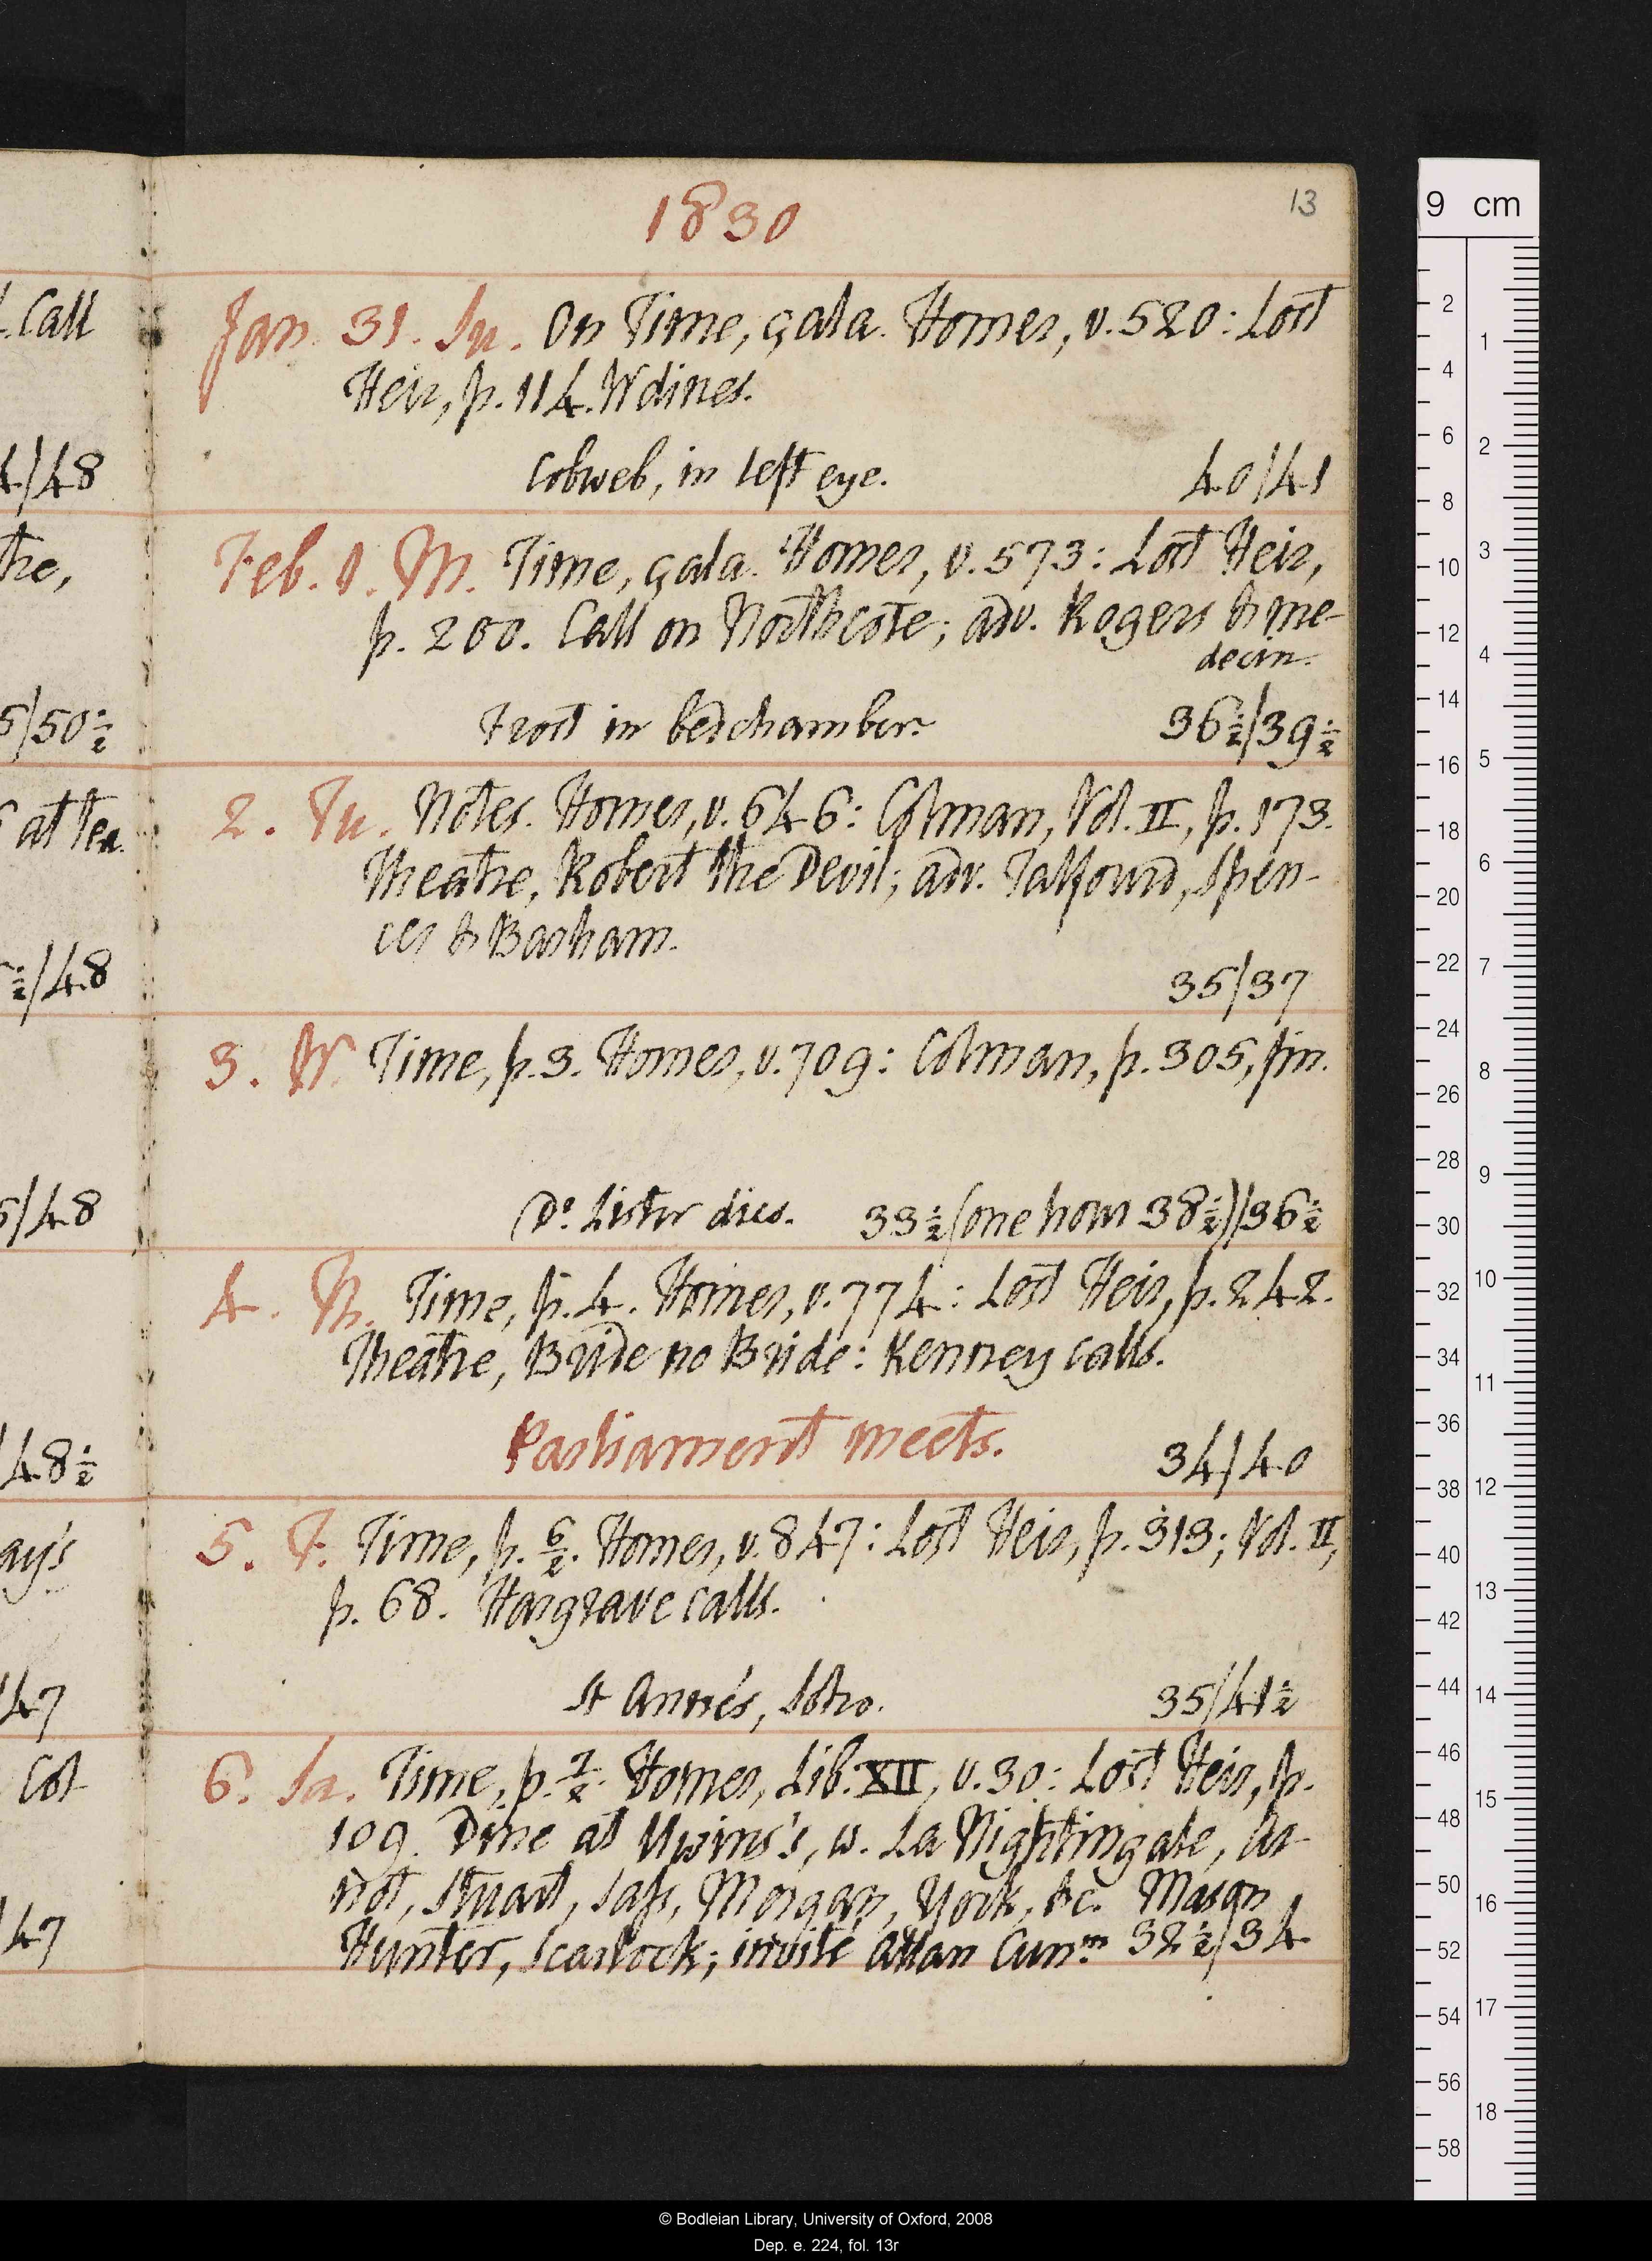 1830
13
Jan. 31. Su. On Time, çala. Homer, v. 520: Lost
Heir, p. 114. W dines.
Cobweb, in left eye. 40/41
Feb. 1. M. Time, çala. Homer, v. 573: Lost Heir,
p. 200. Call on Northcote; adv. Rogers & me-
decin.
Frost in bedchamber. 36½/39½
2. Tu. Notes. Homer, v. 646: Colman, Vol. II, p. 173.
Theatre, Robert the Devil; adv. Talfourd, Spen-
ces & Barham.
35/37
3. W. Time, p. 3. Homer, v. 709: Colman, p. 305, fin.
Dr Lister dies. 33½ (one hour 38½)/36½
4. Th. Time, p. 4. Homer, v. 774: Lost Heir, p. 242.
Theatre, Bride no Bride: Kenney calls.
Parliament meets. 34/40
5. F. Time, p. 6/2. Homer, v. 847: Lost Heir, p. 313; Vol. II,
p. 68. Hargrave calls.
St Anne's, Soho. 35/41½
6. Sa. Time, p. 7/2. Homer, Lib. XII, v. 30: Lost Heir, p.
109. Dine at Uwins's, w. La Nightingale, Ar-
not, Stuart, Sass, Morgan, York, &c. Mason
Hunter, Scarlock; invite Allan Cunm 32½/34
. Call
4/48
tre,
5/50½
at tea.
½/48
5/48
48½
ay's
47
Col-
47
9 cm
2
4
6
8
10
12
14
16
18
20
22
24
26
28
30
32
34
36
38
40
42
44
46
48
50
52
54
56
58
1
2
3
4
5
6
7
8
9
10
11
12
13
14
15
16
17
18
© Bodleian Library, University of Oxford, 2008
Dep. e. 224, fol. 13r